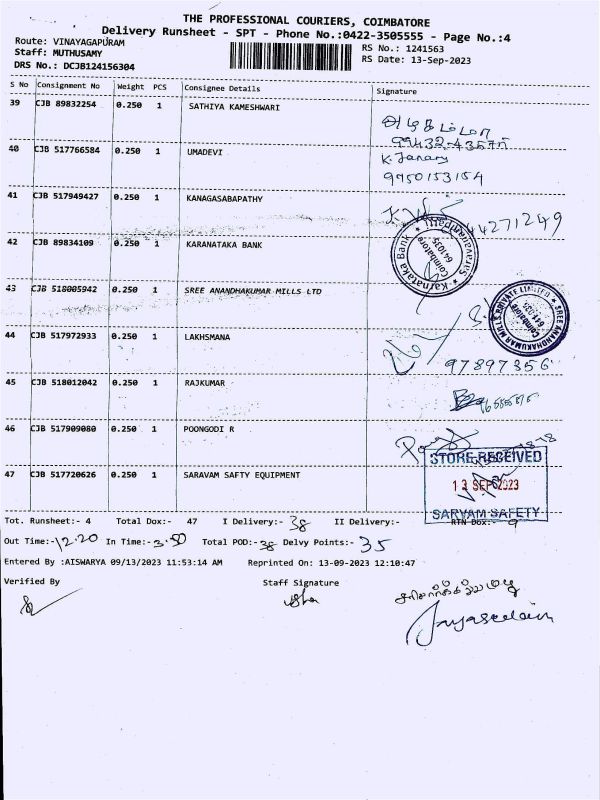 THE PROFESSIONAL COURIERS, COIMBATORE
Delivery Runsheet - SPT - Phone No.:0422-3505555 - Page No.:4
Route: VINAYAGAPURAM
RS No.: 1241563
Staff: MUTHUSAMY
RS Date: 13-Sep-2023
DRS No.: DCJB124156304
S No Consignment No Weight PCS Consignee Details Signature
39 CJB 89832254 0.250 1 SATHIYA KAMESHWARI
40 CJB 517766584 0.250 1 UMADEVI
9950153154
41 CJB 517949427 0.250 1 KANAGASABAPATHY
42 CJB 89834109 0.250 1 KARANATAKA BANK
Karnataka Bank
Coimbatore
641035
43 CJB 518005942 0.250 1 SREE ANANDHAKUMAR MILLS LTD
SREE ANANDHAKUMAR MILLS PRIVATE LIMITED
Coimbatore
641 035
44 CJB 517972933 0.250 1 LAKHSMANA
97897356
45 CJB 518012042 0.250 1 RAJKUMAR
46 CJB 517909080 0.250 1 POONGODI R
47 CJB 517720626 0.250 1 SARAVAM SAFTY EQUIPMENT
STORE RECEIVED
13 SEP 2023
SARVAM SAFETY
Tot. Runsheet:- 4 Total Dox:- 47 I Delivery:- 38 II Delivery:- RTN Dox:- 9
Out Time:- 12.20 In Time:- 3.50 Total POD:- 38 Delvy Points:- 35
Entered By :AISWARYA 09/13/2023 11:53:14 AM Reprinted On: 13-09-2023 12:10:47
Verified By Staff Signature